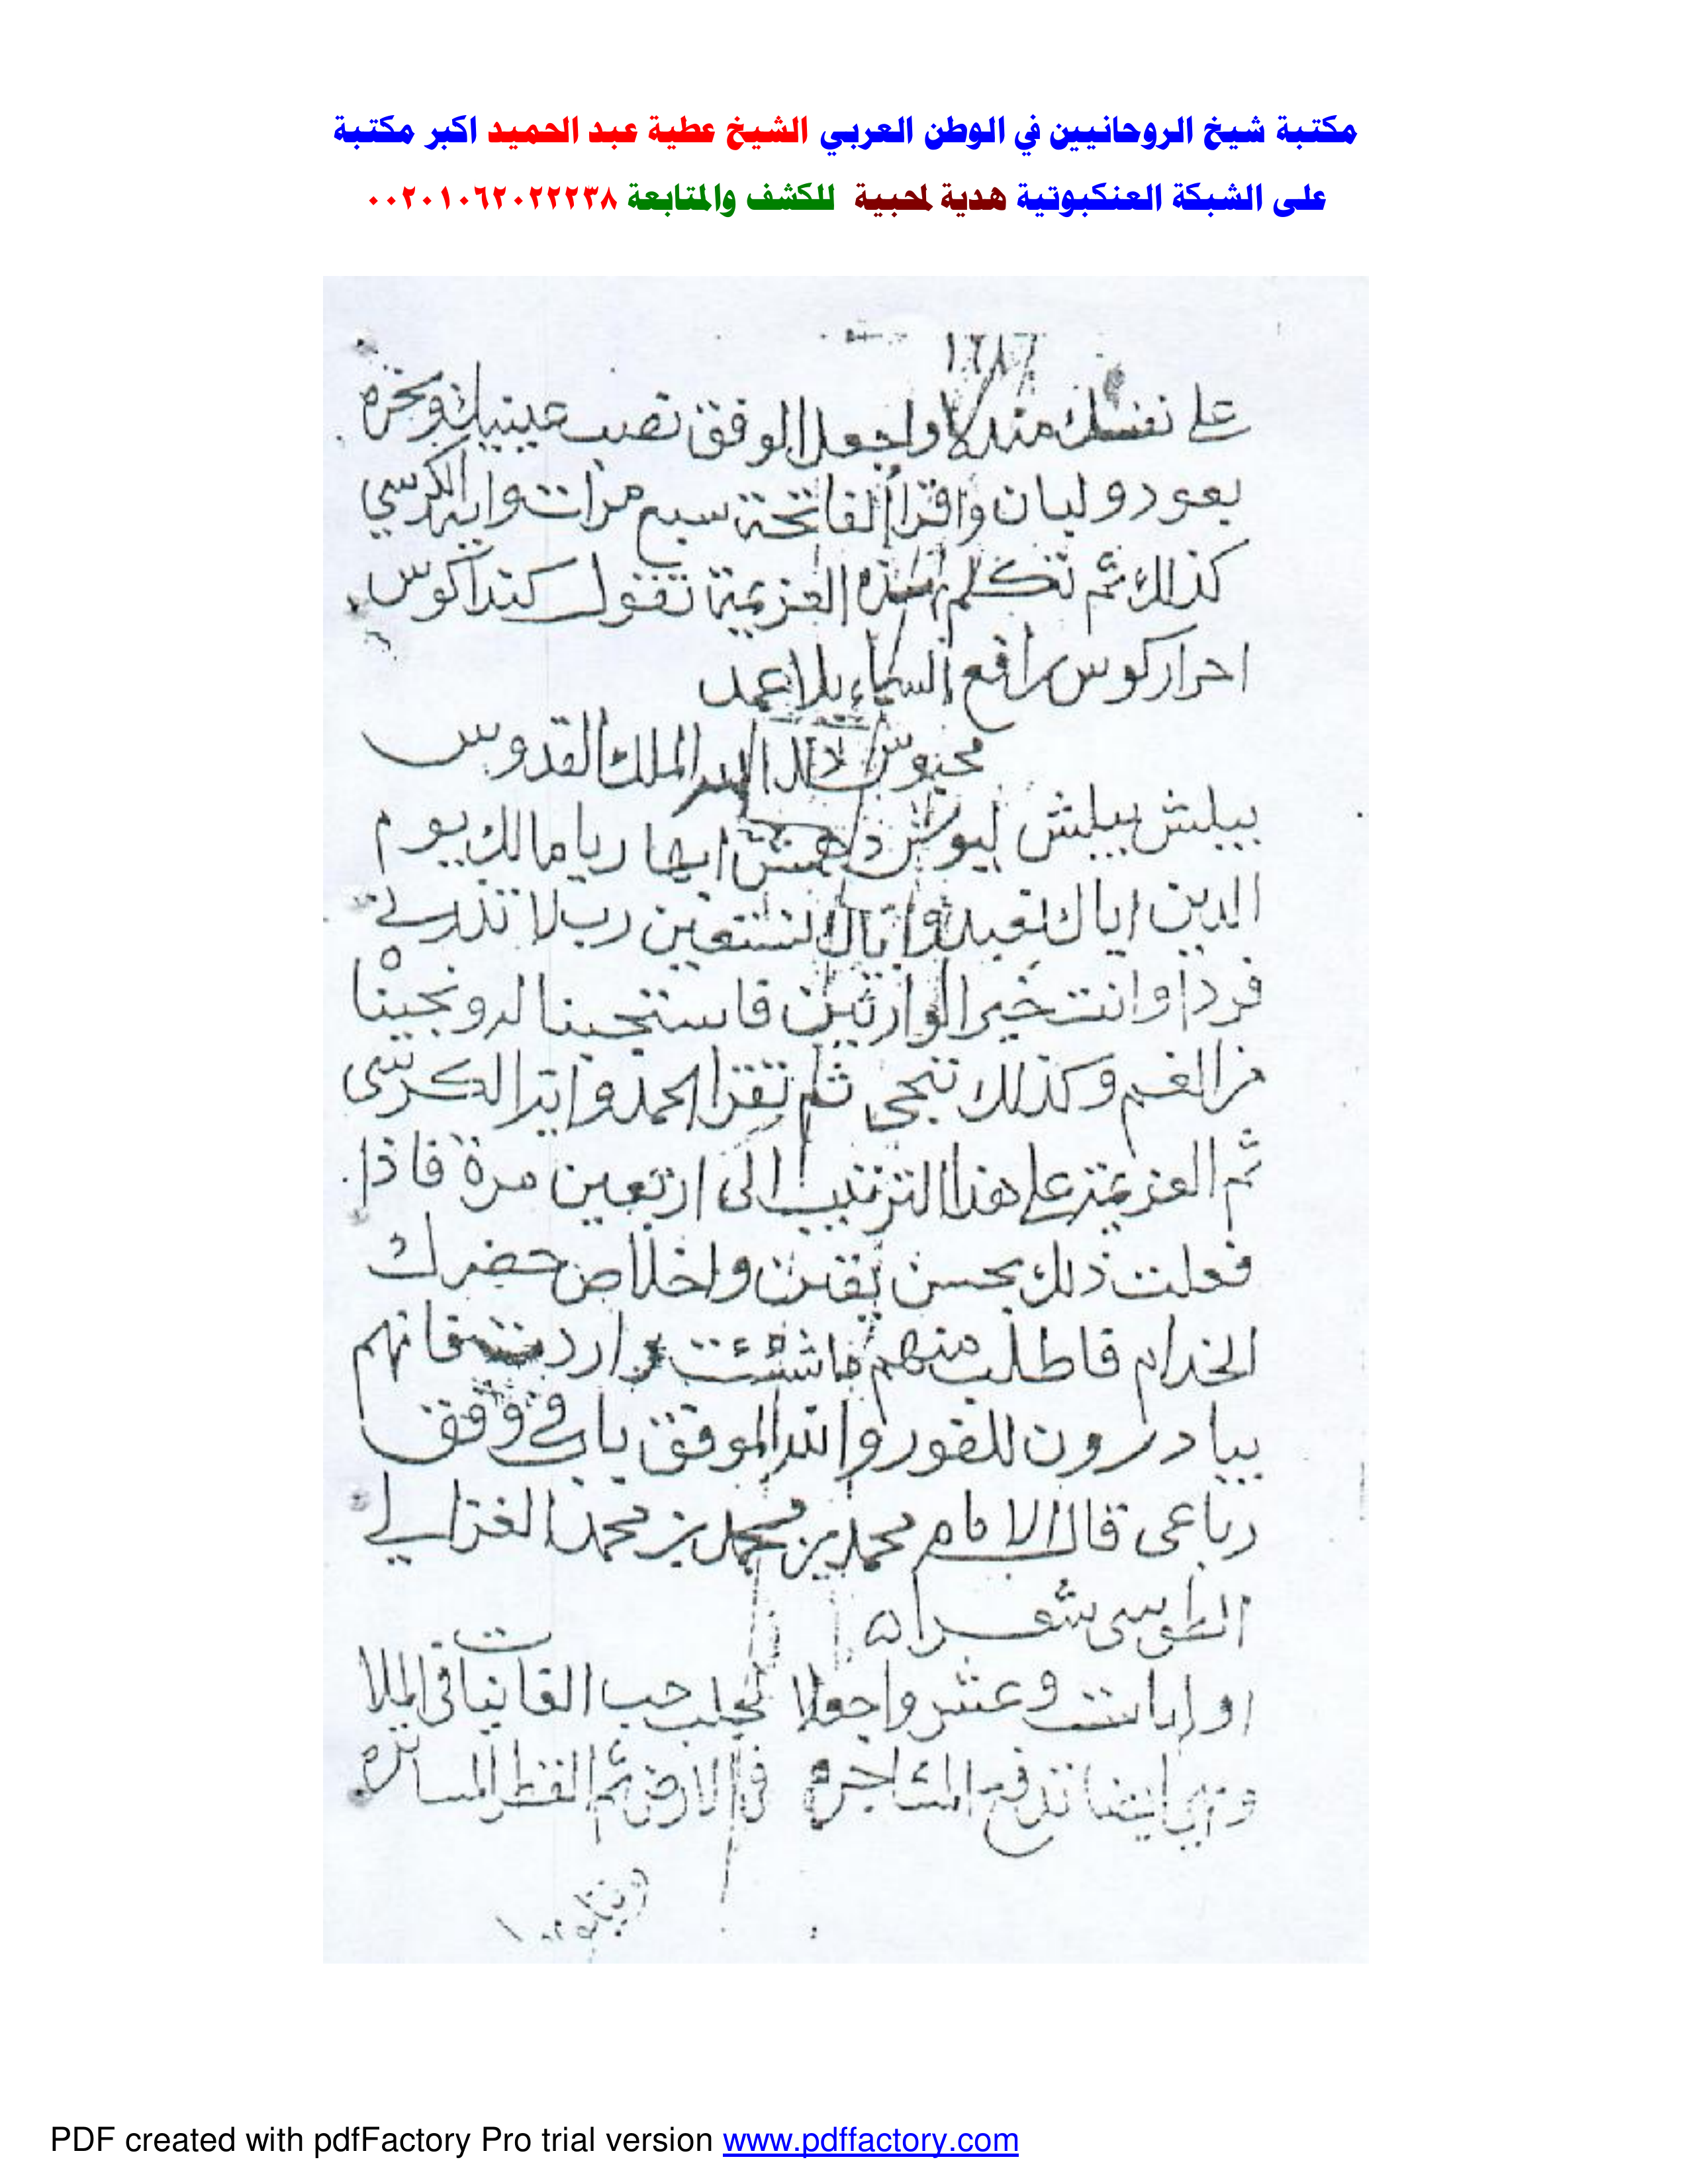 مكتبة شيخ الروحانيين في الوطن العربي الشيخ عطية عبد الحميد اكبر مكتبة
على الشبكة العنكبوتية هدية لمحبية للكشف والمتابعة ٠٠٢٠١٠٦٢٠٢٢٢٣٨
على نفسك منه واجعل الوفق نصب عينيك وبخره
بعود ولبان واقرأ الفاتحة سبع مرات واية الكرسي
كذلك ثم تكلم بهذه العزيمة تقول كنداكوس
احراركوس رافع السماء بلا عمد
الملك القدوس
ببلش ببلش ليوش ايها ربا مالك يوم
الدين اياك نعبد واياك نستعين رب لا تذرني
فردا وانت خير الوارثين فاستجبنا له ونجينا
من الغم وكذلك ننجى ثم تقرا الحمد واية الكرسى
ثم العزيمة على هذا الترتيب الى اربعين مرة فاذا
فعلت ذلك بحسن يقين واخلاص حضرك
الخدام فاطلب منهم ما شئت واردت فانهم
يبادرون للفور والله الموفق باب في وفق
رباعى قال الامام محمد بن محمد بن محمد الغزالي
الطوسى شعرا
وعشر واجعلا لجلب حب الغانيات فى الملا
ايضا تدفع المشاجره الارض ثم